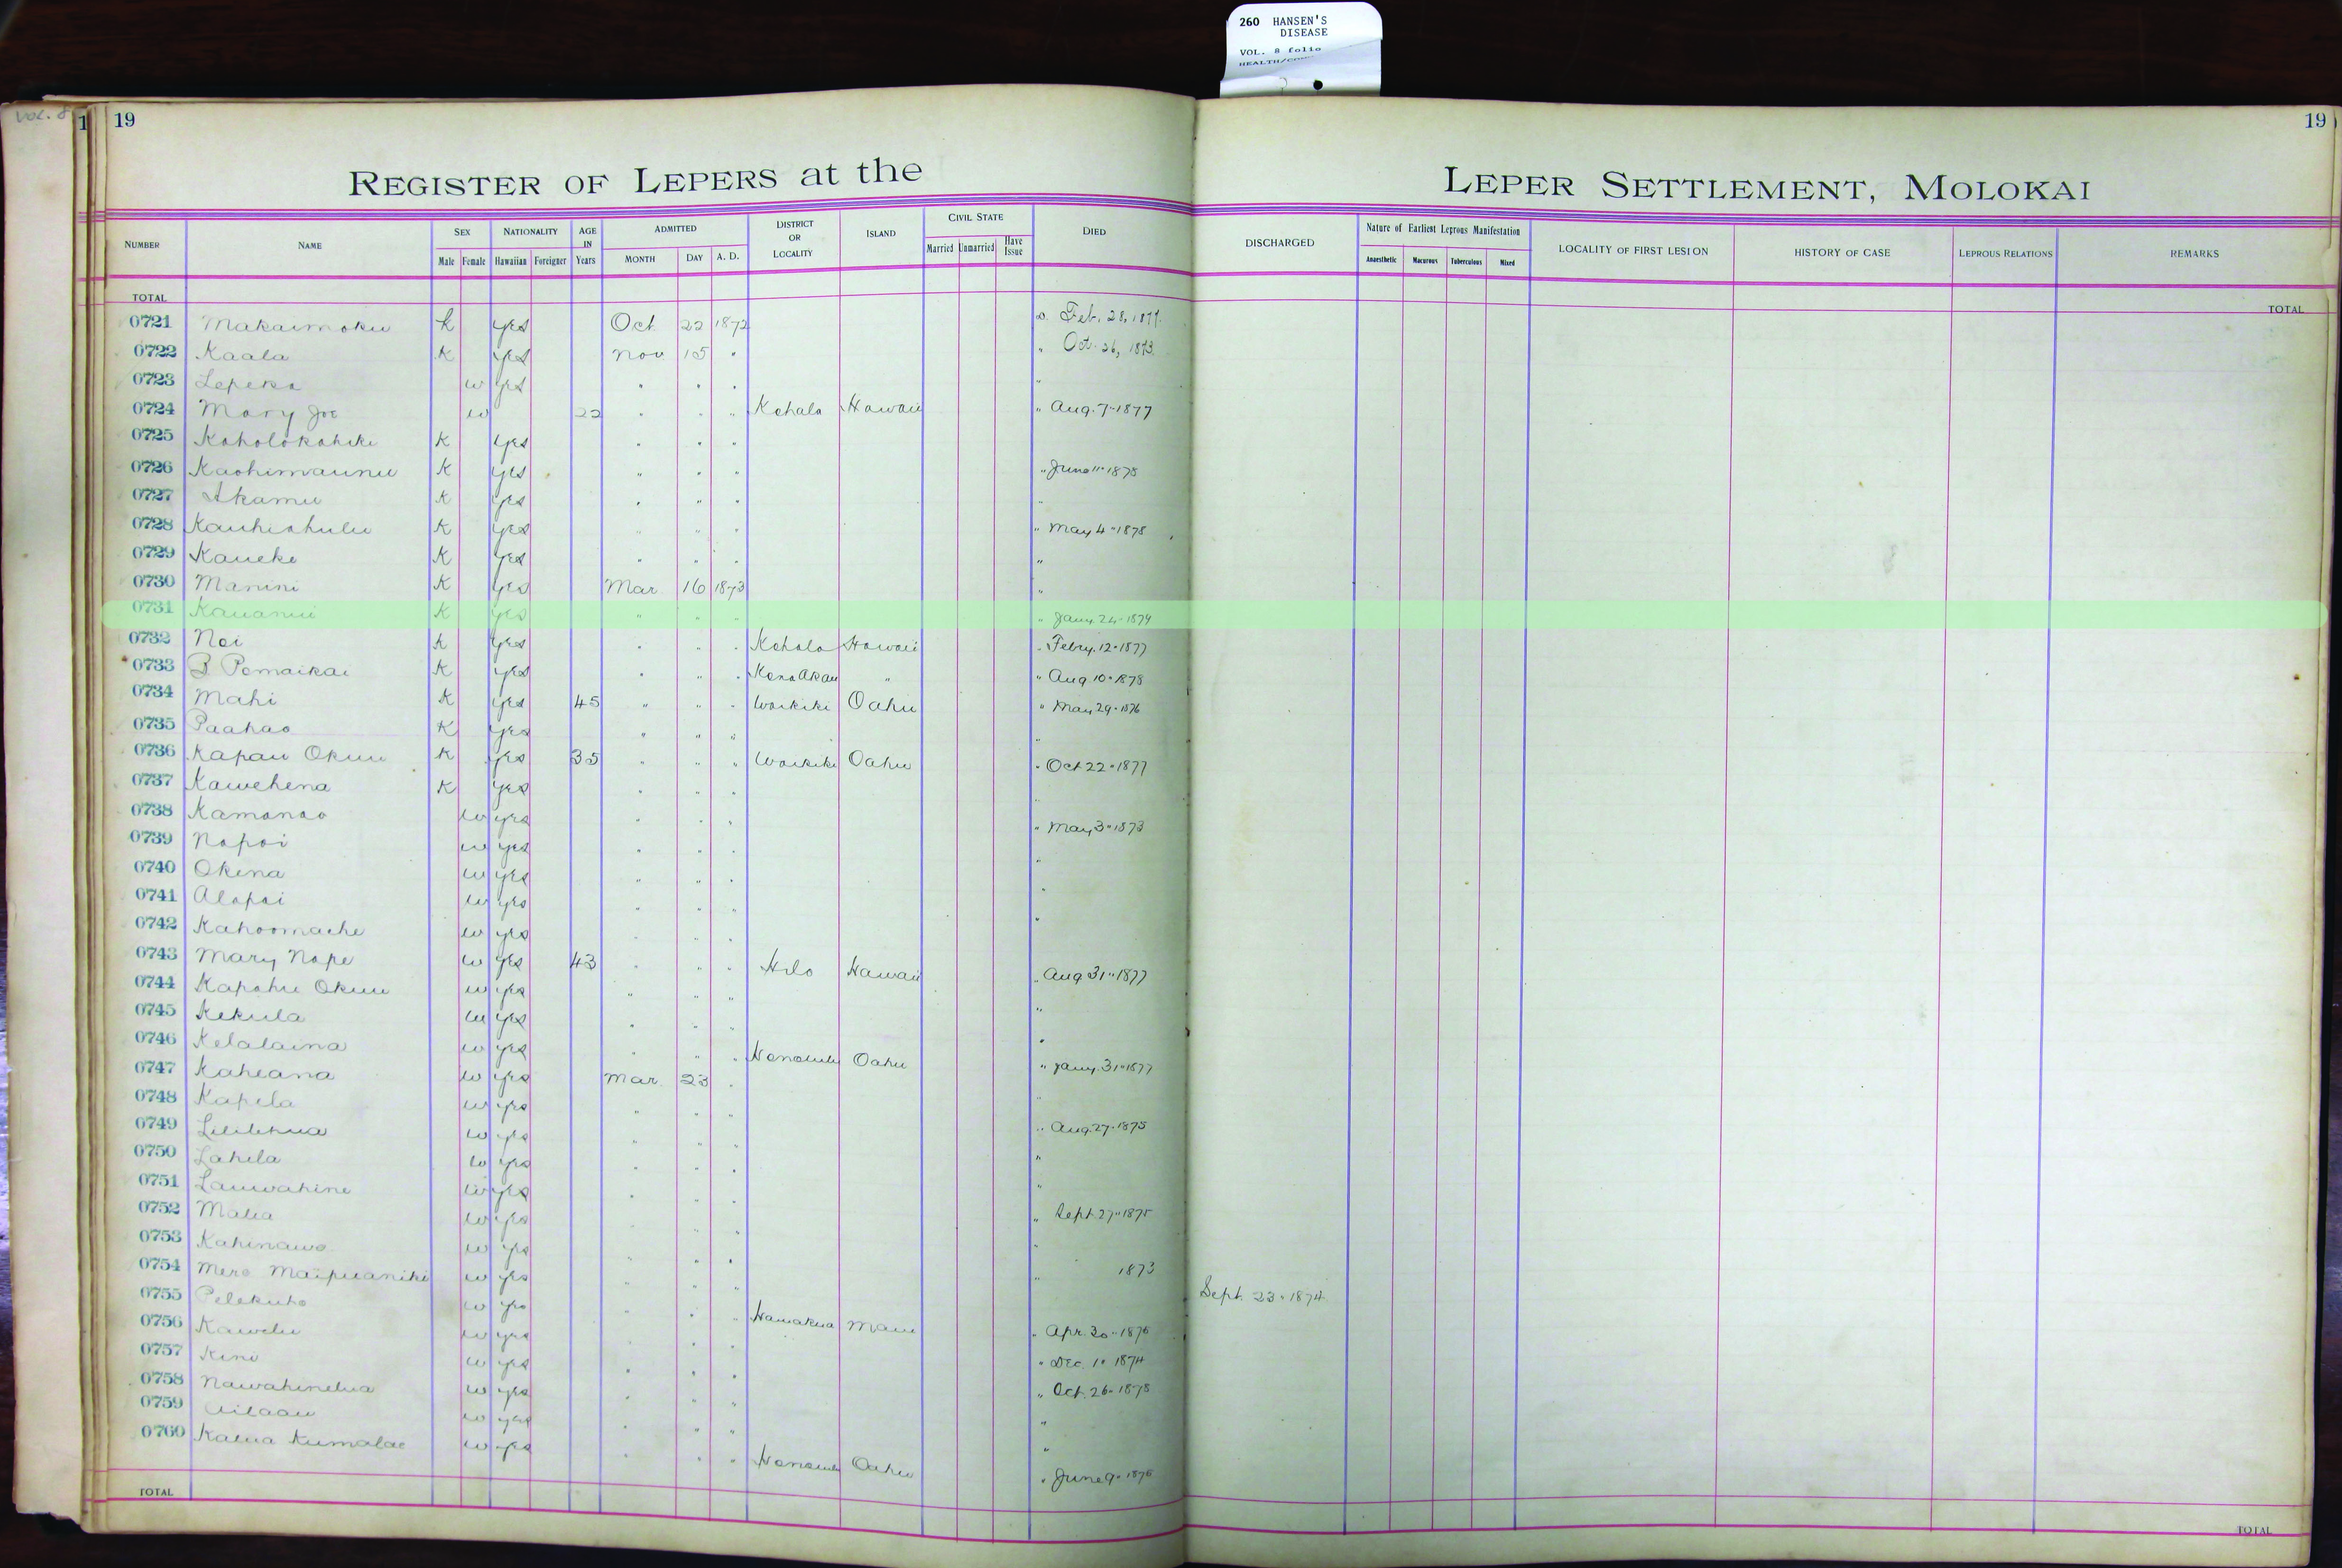 260 HANSEN'S
DISEASE
VOL. 8 folio
Vol. 8
1 19 19
REGISTER OF LEPERS at the LEPER SETTLEMENT, MOLOKAI
NUMBER NAME SEX Male Female NATIONALITY Hawaiian Foreigner AGE IN Years ADMITTED MONTH DAY A. D. DISTRICT OR LOCALITY ISLAND CIVIL STATE Married Unmarried Have Issue DIED DISCHARGED Nature of Earliest Leprous Manifestation Anaesthetic Macurous Tuberculous Mixed LOCALITY OF FIRST LESION HISTORY OF CASE LEPROUS RELATIONS REMARKS
TOTAL TOTAL
0721 Makaimoku K yes Oct 22 1872 Feb. 28, 1877
0722 Kaala K yes Nov 15 " " Oct. 26, 1873
0723 Lepeka w yes " " " "
0724 Mary Joe w 22 " " " Kohala Hawaii " Aug. 7 " 1877
0725 Koholokahiki K yes " " "
0726 Kaohimaunu K yes " " " " June 11 " 1878
0727 Akamu K yes " " " "
0728 Kauhiahulu K yes " " " " May 4 " 1878
0729 Kaueke K yes " " " "
0730 Manini K yes Mar 16 1873 "
0731 Kauanui K yes " " " " Jany. 24 " 1874
0732 Noi K yes " " " Kohala Hawaii " Febry. 12 " 1877
0733 B Pomaikai K yes " " " Kona Akau " " Aug 10 " 1878
0734 Mahi K yes 45 " " " Waikiki Oahu " May 29 " 1876
0735 Paahao K yes " " " "
0736 Kapau Okuu K yes 35 " " " Waikiki Oahu " Oct 22 " 1877
0737 Kawehena K yes " " " "
0738 Kamanao w yes " " " " May 3 " 1873
0739 Napoi w yes " " " "
0740 Okina w yes " " " "
0741 Alapai w yes " " " "
0742 Kahoomache w yes " " "
0743 Mary Nape w yes 43 " " " Hilo Hawaii " Aug 31 " 1877
0744 Kapahu Okuu w yes " " " "
0745 Kekula w yes " " " "
0746 Kelalaina w yes " " " Honolulu Oahu " Jany. 31 " 1877
0747 Kaheana w yes Mar. 23 " "
0748 Kapela w yes " " " " Aug. 27 " 1875
0749 Lililehua w yes " " " "
0750 Lahela w yes " " " "
0751 Lauwahine w yes " " " " Sept. 27 " 1875
0752 Malia w yes " " " "
0753 Kahinawe w yes " " " " 1873
0754 Mere Maipuaniki w yes " " " Sept. 23 " 1874
0755 Pelekuho w yes " " " Hamakua Maui " Apr. 30 " 1876
0756 Kawelu w yes " " " " Dec. 10 1874
0757 Kini w yes " " " " Oct. 26 " 1878
0758 Nawahinelua w yes " " " "
0759 Ailaau w yes " " " "
0760 Kalua Kumalae w yes " " " Honolulu Oahu " June 9 " 1876
TOTAL TOTAL